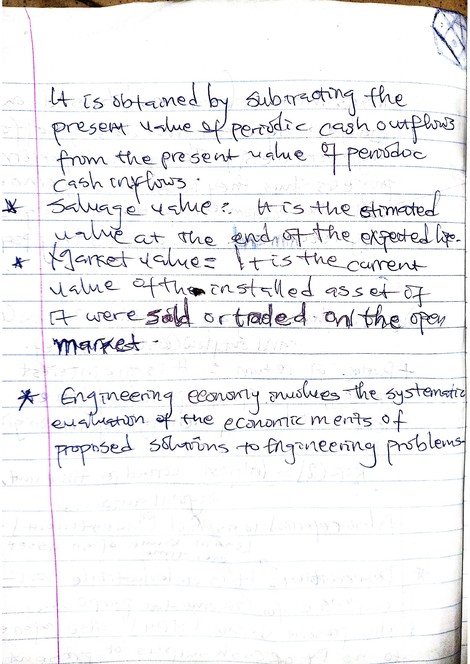 It is obtained by subtracting the
present value of periodic cash outflows
from the present value of periodoc
cash inflows.
* Salvage value: It is the estimated
value at the end of the expected life.
* Market value = It is the current
value of the installed asset if
it were sold or traded on the open
market.
* Engineering economy involves the systematic
evaluation of the economic merits of
proposed solutions to Engineering problems